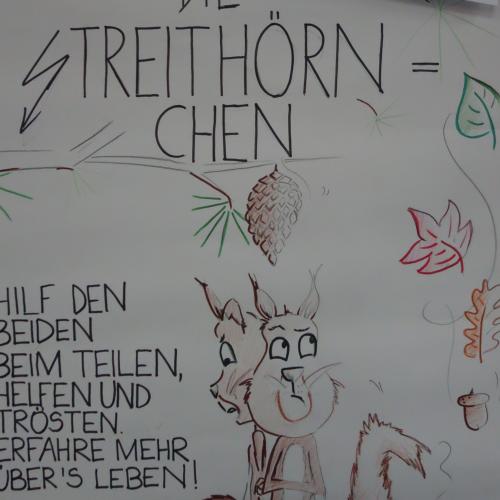 DIE
STREITHÖRN=
CHEN
HILF DEN
BEIDEN
BEIM TEILEN,
HELFEN UND
TRÖSTEN.
ERFAHRE MEHR
ÜBER'S LEBEN!